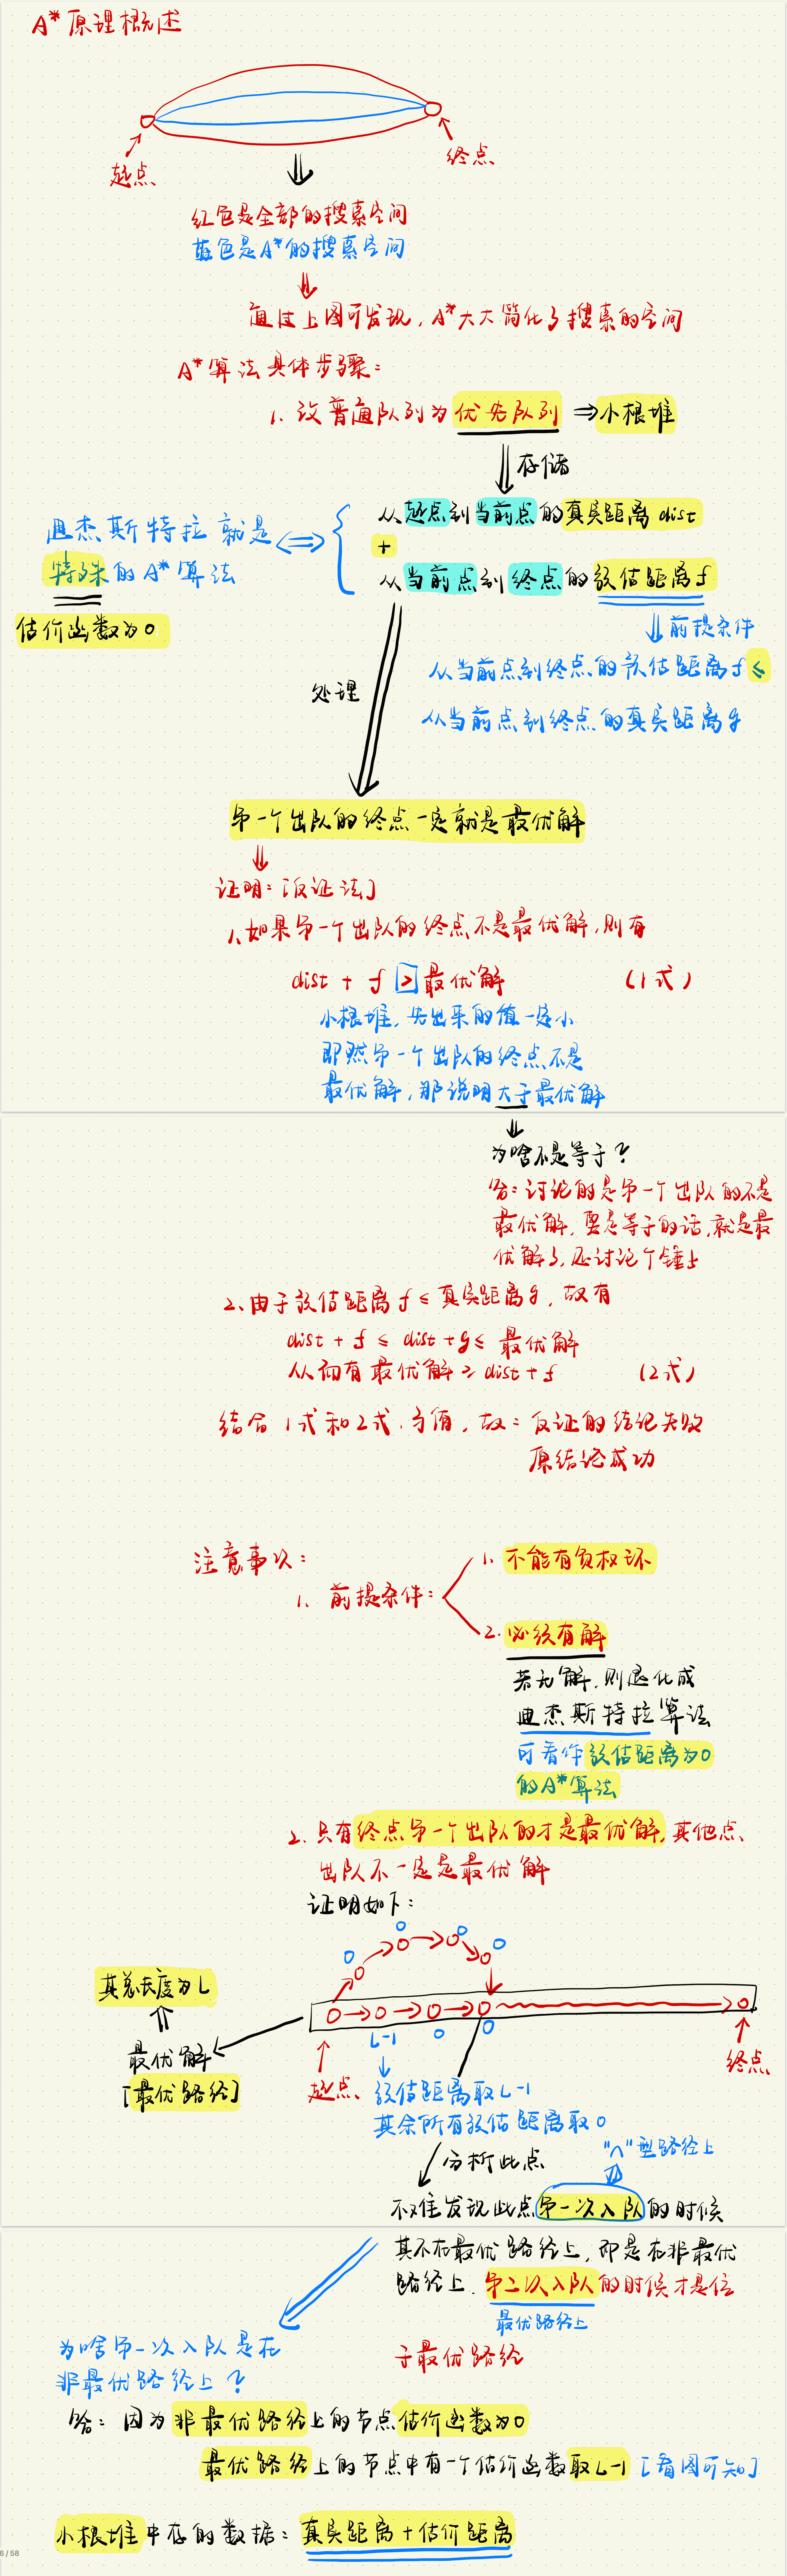 A*原理概述
起点
终点
红色是全部的搜索空间
蓝色是A*的搜索空间
通过上图可发现，A*大大简化了搜索的空间
A*算法具体步骤：
1. 改普通队列为优先队列 ⇒小根堆
存储
从起点到当前点的真实距离dist
+
从当前点到终点的预估距离f
迪杰斯特拉就是
特殊的A*算法
估价函数为0
前提条件
从当前点到终点的预估距离f ≤
从当前点到终点的真实距离g
处理
第一个出队的终点一定就是最优解
证明：[反证法]
1、如果第一个出队的终点不是最优解，则有
dist + f > 最优解 (1式)
小根堆，先出来的值一定小
即然第一个出队的终点不是
最优解，那说明大于最优解
为啥不是等于？
答：讨论的是第一个出队的不是
最优解，要是等于的话，就是最
优解了，还讨论个锤子
2、由于预估距离f ≤ 真实距离g，故有
dist + f ≤ dist + g ≤ 最优解
从而有最优解 ≥ dist + f (2式)
结合1式和2式，矛盾，故：反证的结论失败
原结论成功
注意事项：
1. 前提条件：
1. 不能有负权环
2. 必须有解
若无解，则退化成
迪杰斯特拉算法
可看作预估距离为0
的A*算法
2. 只有终点第一个出队的才是最优解，其他点
出队不一定是最优解
证明如下：
0
0
0
0
其总长度为L
L-1
0
0
最优解
[最优路径]
起点
终点
预估距离取L-1
其余所有预估距离取0
分析此点
"∧"型路径上
不难发现此点第一次入队的时候
其不在最优路径上，即是在非最优
路径上，第二次入队的时候才是位
最优路径上
于最优路径
为啥第一次入队是在
非最优路径上？
答：因为非最优路径上的节点估价函数为0
最优路径上的节点中有一个估价函数取L-1 [看图可知]
小根堆中存的数据：真实距离+估价距离
6 / 58